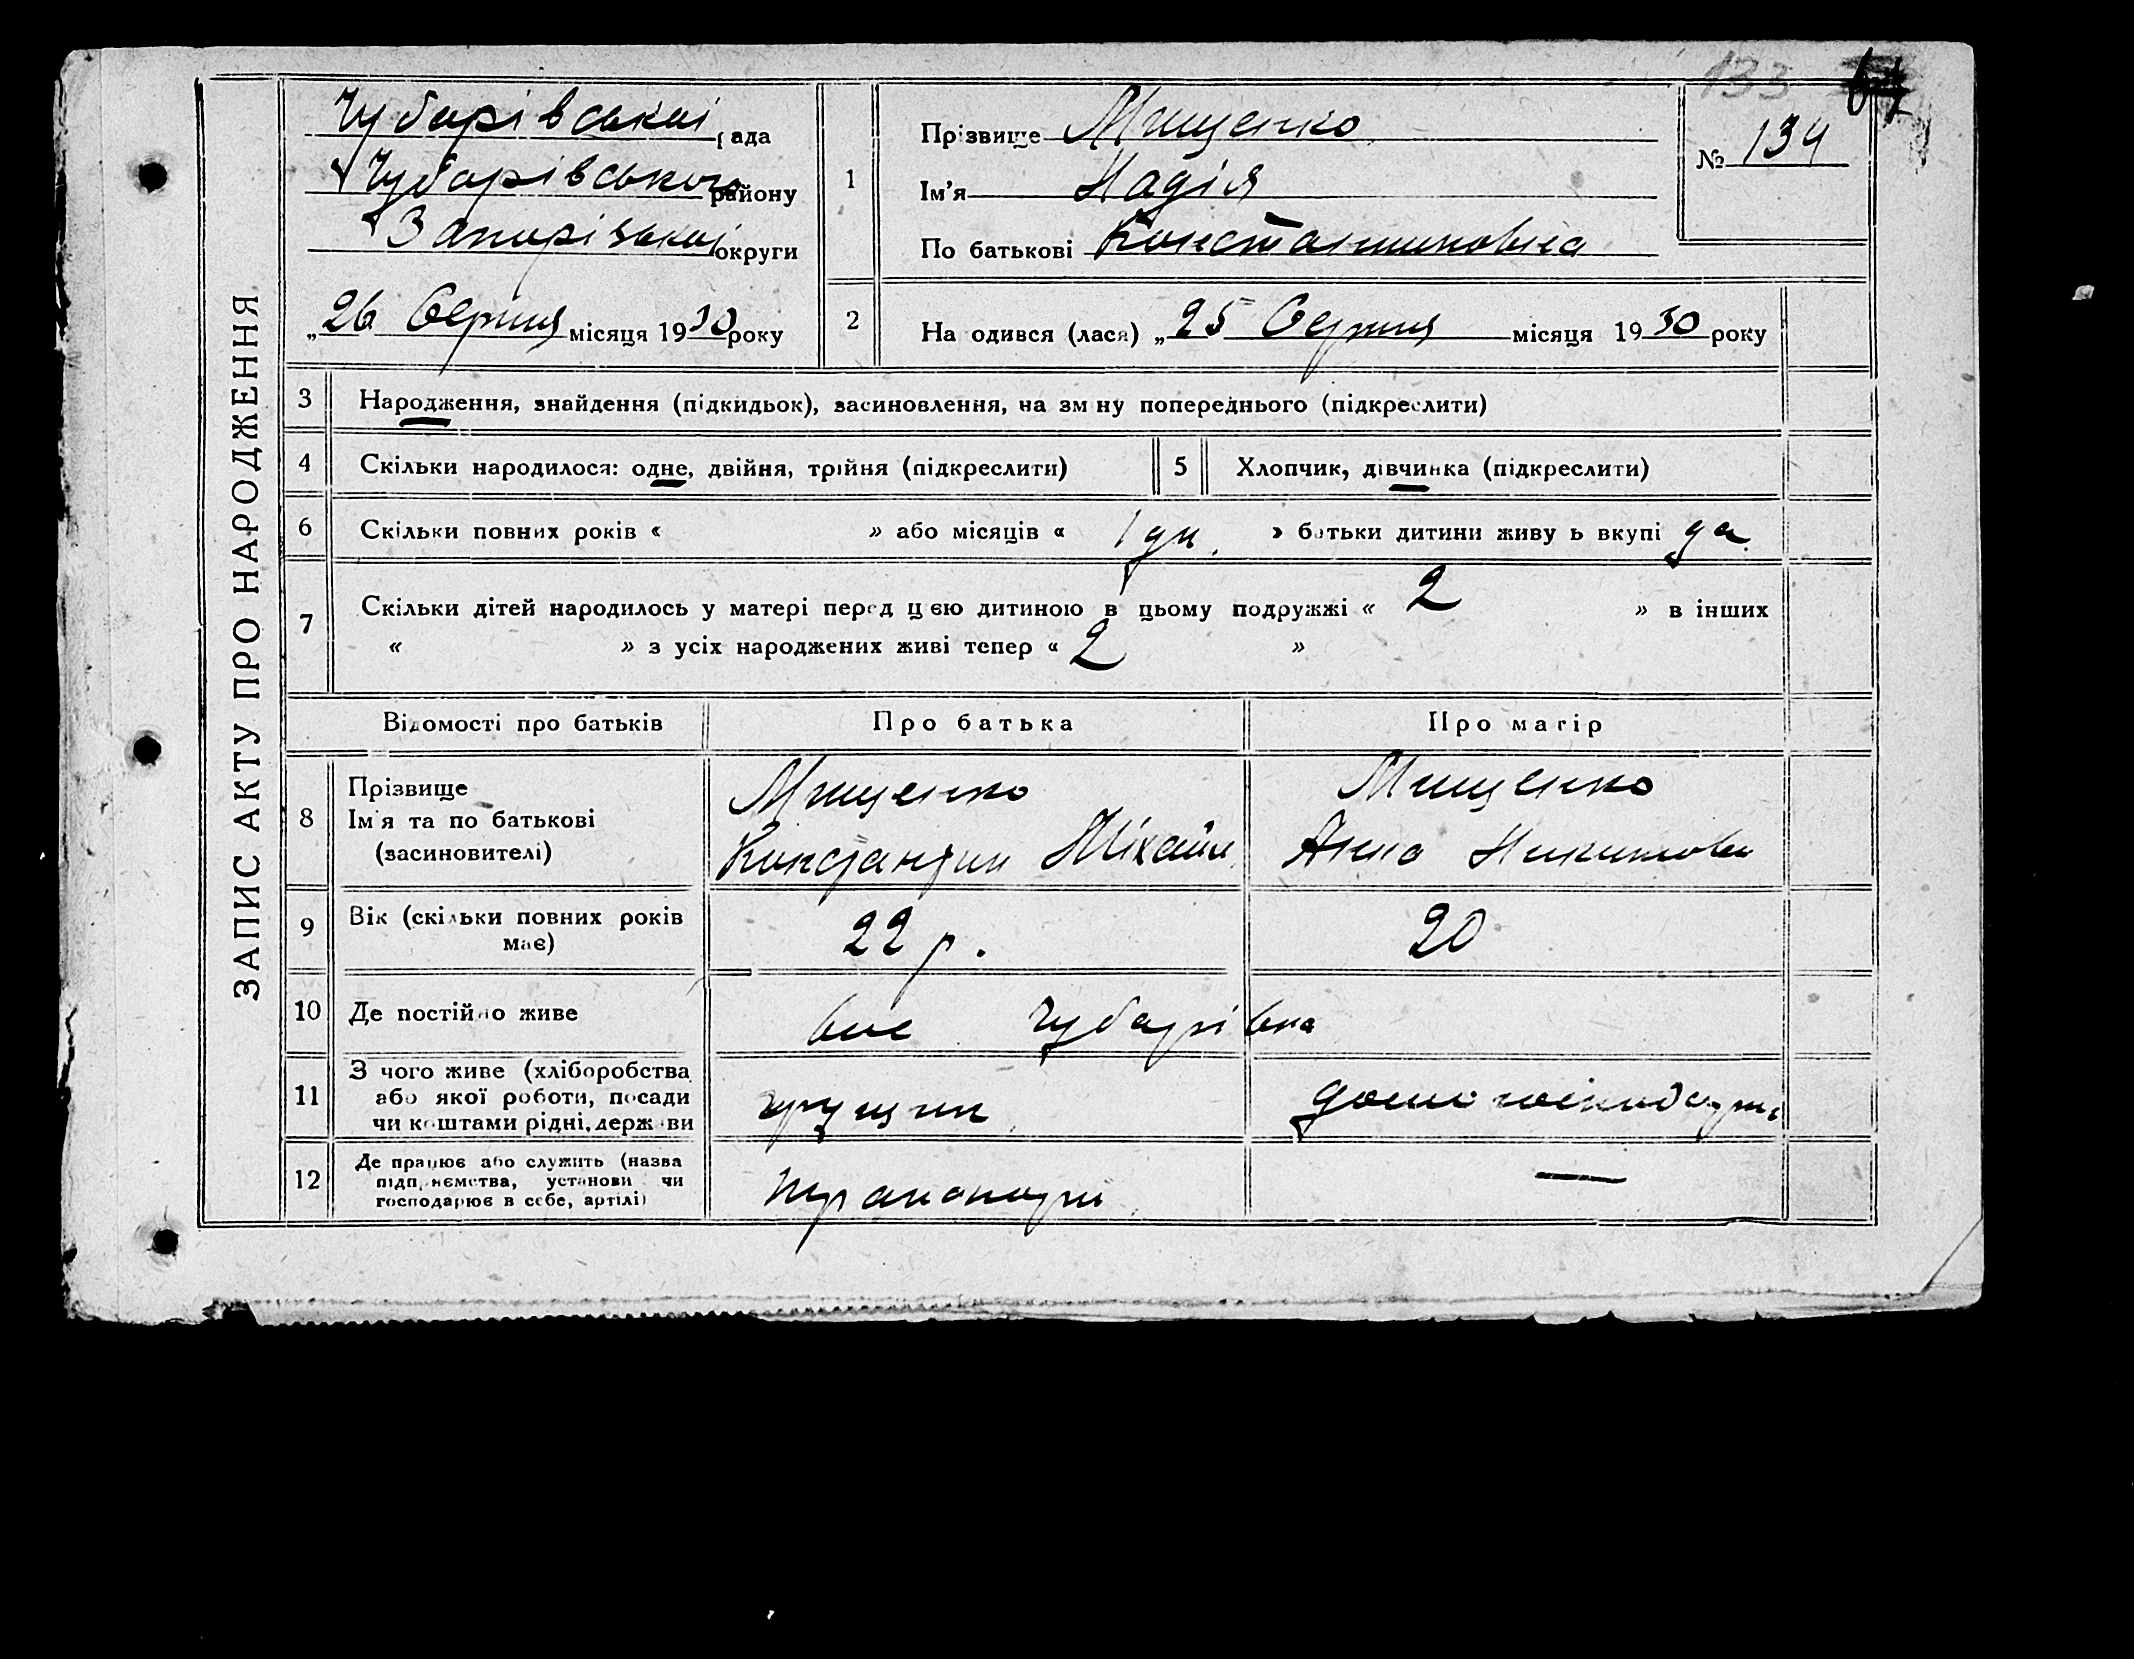 133
Чубарівської рада
Чубарівського району
Запорізької округи
„26 Серпня місяця 1930 року
1
Прізвище Мищенко
Ім’я Надія
По батькові Константиновна
№ 134
2
На одився (лася) „25 Серпня місяця 1930 року
ЗАПИС АКТУ ПРО НАРОДЖЕННЯ
3 Народження, знайдення (підкидьок), засиновлення, на зм ну попереднього (підкреслити)
4 Скільки народилося: одне, двійня, трійня (підкреслити)
5 Хлопчик, дівчинка (підкреслити)
6 Скільки повних років « » або місяців « 1 дн. » батьки дитини живу ь вкупі да
7 Скільки дітей народилось у матері перед цією дитиною в цьому подружжі « 2 » в інших
« » з усіх народжених живі тепер « 2 »
Відомості про батьків
Про батька
Про матір
8
Прізвище
Ім’я та по батькові
(засиновителі)
Мищенко
Константин Міхайл.
Мищенко
Анна Никитовн
9
Вік (скільки повних років
має)
22 р.
20
10 Де постійно живе
Чубарівка
11
З чого живе (хліборобства
або якої роботи, посади
чи коштами рідні, держави
домогосподарка
12
Де працює або служить (назва
підприємства, установи чи
господарює в себе, артілі)
—